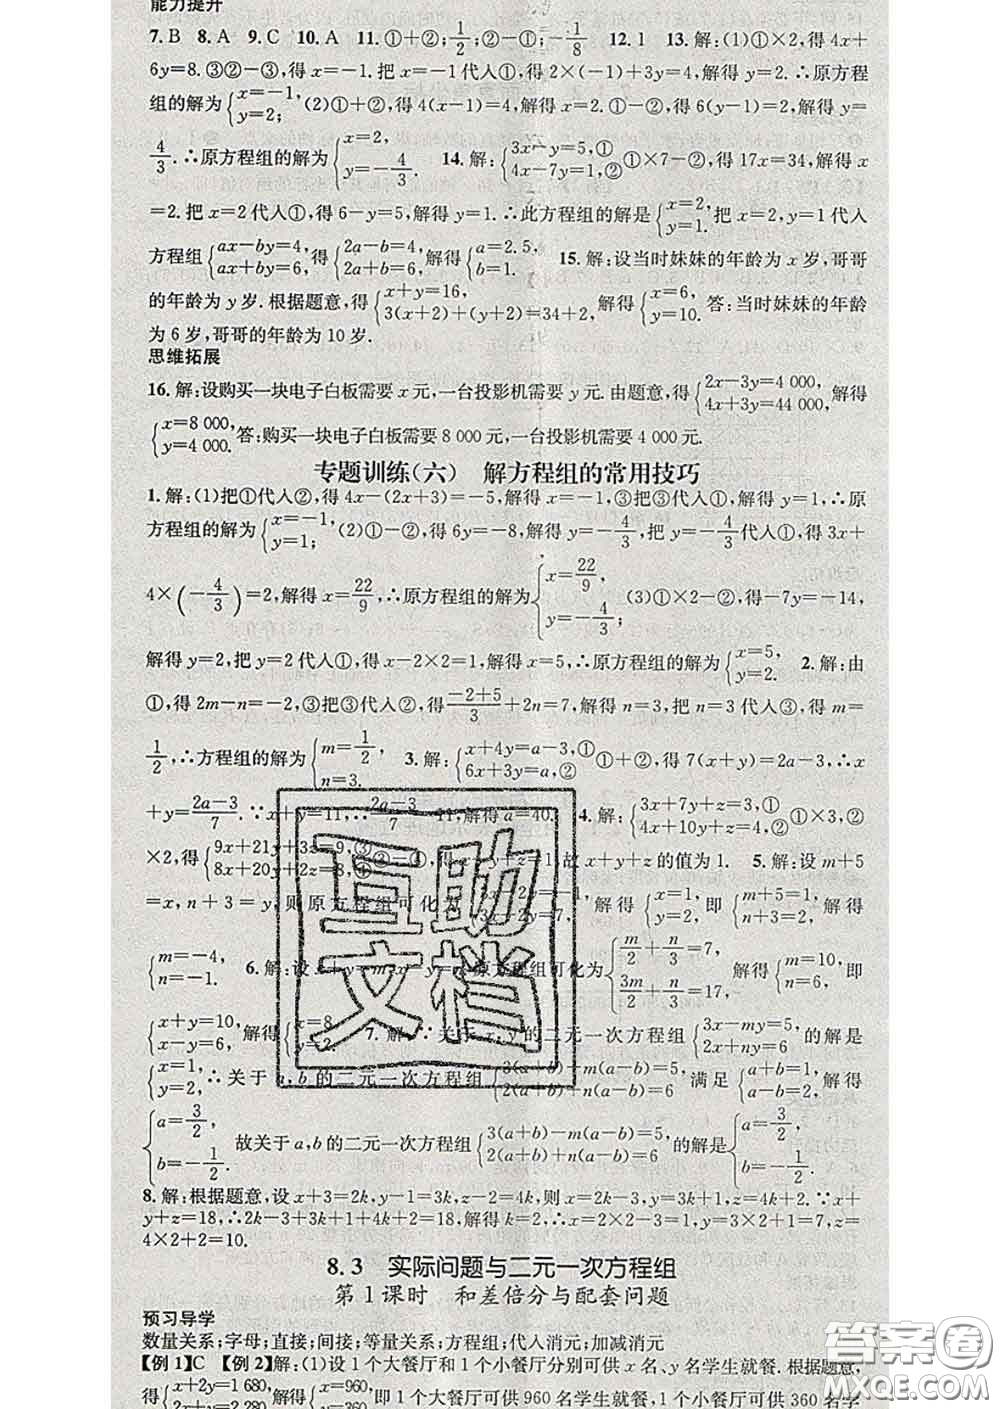 能力提升
7. B 8. A 9. C 10. A 11. ①+②; 1/2; ②-①; -1/8 12. 1 13. 解:(1)①×2,得 4x+
6y=8. ③②-③,得 x=-1. 把 x=-1 代人①,得 2×(-1)+3y=4,解得 y=2. ∴原方程
组的解为{x=-1, y=2; (2)①+②,得 4(x-1)=4,解得 x=2. ①-②,得 6(y-1)=2,解得 y=
4/3. ∴原方程组的解为{x=2, y=4/3. 14. 解:{3x-y=5,① 4x-7y=1,② ①×7-②,得 17x=34,解得 x
=2. 把 x=2 代人①,得 6-y=5,解得 y=1. ∴此方程组的解是{x=2, y=1. 把 x=2, y=1 代人
方程组{ax-by=4, ax+by=6, 得{2a-b=4, 2a+b=6, 解得{a=2.5, b=1. 15. 解:设当时妹妹的年龄为 x 岁,哥哥
的年龄为 y 岁. 根据题意,得{x+y=16, 3(x+2)+(y+2)=34+2, 解得{x=6, y=10. 答:当时妹妹的年龄
为 6 岁,哥哥的年龄为 10 岁.
思维拓展
16. 解:设购买一块电子白板需要 x 元,一台投影机需要 y 元. 由题意,得{2x-3y=4 000, 4x+3y=44 000, 解得
{x=8 000, y=4 000. 答:购买一块电子白板需要 8 000 元,一台投影机需要 4 000 元.
专题训练(六) 解方程组的常用技巧
1. 解:(1)把①代人②,得 4x-(2x+3)=-5,解得 x=-1,③把③代人①,解得 y=1,∴原
方程组的解为{x=-1, y=1; (2)①-②,得 6y=-8,解得 y=-4/3,把 y=-4/3 代人①,得 3x+
4×(-4/3)=2,解得 x=22/9,∴原方程组的解为{x=22/9, y=-4/3; (3)①×2-②,得-7y=-14,
解得 y=2,把 y=2 代人①,得 x-2×2=1,解得 x=5,∴原方程组的解为{x=5, y=2. 2. 解:由
①,得 2m-n=-2,③把③代人②,得(-2+5)/3+2n=7,解得 n=3,把 n=3 代人③,得 m=
1/2,∴方程组的解为{m=1/2, n=3. 3. 解:{x+4y=a-3,① 6x+3y=a,② ①+②,得 7(x+y)=2a-3,∴x
+y=(2a-3)/7. ∵x+y=11,∴(2a-3)/7=11,解得 a=40. 4. 解:{3x+7y+z=3,① 4x+10y+z=4,② ①×3,②
×2,得{9x+21y+3z=9,③ 8x+20y+2z=8,④ ③-④,得 x+y+z=1,故 x+y+z 的值为 1. 5. 解:设 m+5
=x,n+3=y,则原方程组可化为 解得{x=1, y=2, 即{m+5=1, n+3=2, 解得
{m=-4, n=-1. 6. 解:设 x+y=m,x-y=n,原方程组可化为{m/2+n/3=7, 3m/2+n/2=17, 解得{m=10, n=6, 即
{x+y=10, x-y=6, 解得{x=8, y=2. 7. 解:∵关于 x,y 的二元一次方程组{3x-my=5, 2x+ny=6 的解是
{x=1, y=2, ∴关于 a,b 的二元一次方程组{3(a+b)-m(a-b)=5, 2(a+b)+n(a-b)=6 满足{a+b=1, a-b=2, 解得
{a=3/2, b=-1/2. 故关于 a,b 的二元一次方程组{3(a+b)-m(a-b)=5, 2(a+b)+n(a-b)=6 的解是{a=3/2, b=-1/2.
8. 解:根据题意,设 x+3=2k,y-1=3k,z-2=4k,则 x=2k-3,y=3k+1,z=4k+2. ∵x+
y+z=18,∴2k-3+3k+1+4k+2=18,解得 k=2,∴x=2×2-3=1,y=3×2+1=7,z=
4×2+2=10.
8.3 实际问题与二元一次方程组
第 1 课时 和差倍分与配套问题
预习导学
数量关系;字母;直接;间接;等量关系;方程组;代人消元;加减消元
【例 1】C 【例 2】解:(1)设 1 个大餐厅和 1 个小餐厅分别可供 x 名、y 名学生就餐. 根据题意,
得{x+2y=1 680, 2x+y=2 280, 解得{x=960, 即 1 个大餐厅可供 960 名学生就餐,1 个小餐厅可供 360 名学
互助
文档
答案圈
MXQE.COM